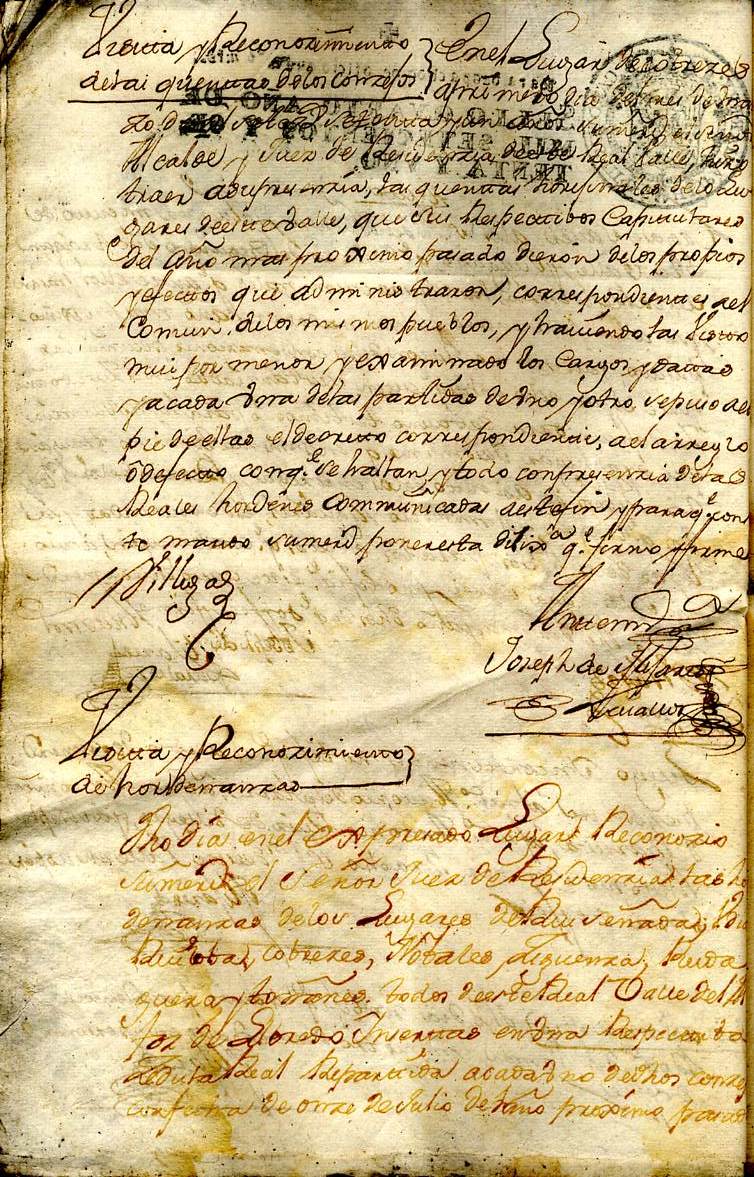 Visita y Reconozimiento
de las quentas de los conzejos
En el Lugar de Cobrezes
a primero dia del mes de
zo de mil setez.s sesenta y un años sumrd el señor
Alcalde y Juez de Residenzia de este Real Valle, hizo
traer a su presenzia, las quentas horijinales de los Lu
gares de este Valle, que sus Respectibos Capitulares
del año mas proximo pasado dieron de los propios
y efectos que administraron, correspondientes al
Comun de los mismos pueblos, y haviendo las visto
mui por menor y examinado los Cargos y datas
y a cada una de las partidas de uno y otro, se puso al
pie de ellas el decreto correspondiente, al arreglo
o defecto con q.e se hallan, y todo con presenzia de las
Reales hordenes Communicadas a este fin, y para q.e cons
te mando sumrd poner esta dilix.a q.e firmo y firme
Villegas
Ante mi
Joseph de
Visita y Reconozimiento
de hordenanzas
Dho dia en el expresado Lugar Reconozio
sumrd el Señor Juez de Residenzia las ho
denanzas de los Lugares de Ruiseñada,
Ruiloba, Cobrezes, Nobales, Ziguenza, Ruda
guera y toñanes todos de este Real Valle del Al
foz de Lloredo Insertas en una Respectiva
Zedula Real Repartida a cada uno de dhos conze
con fecha de onze de Julio del año proximo pasado